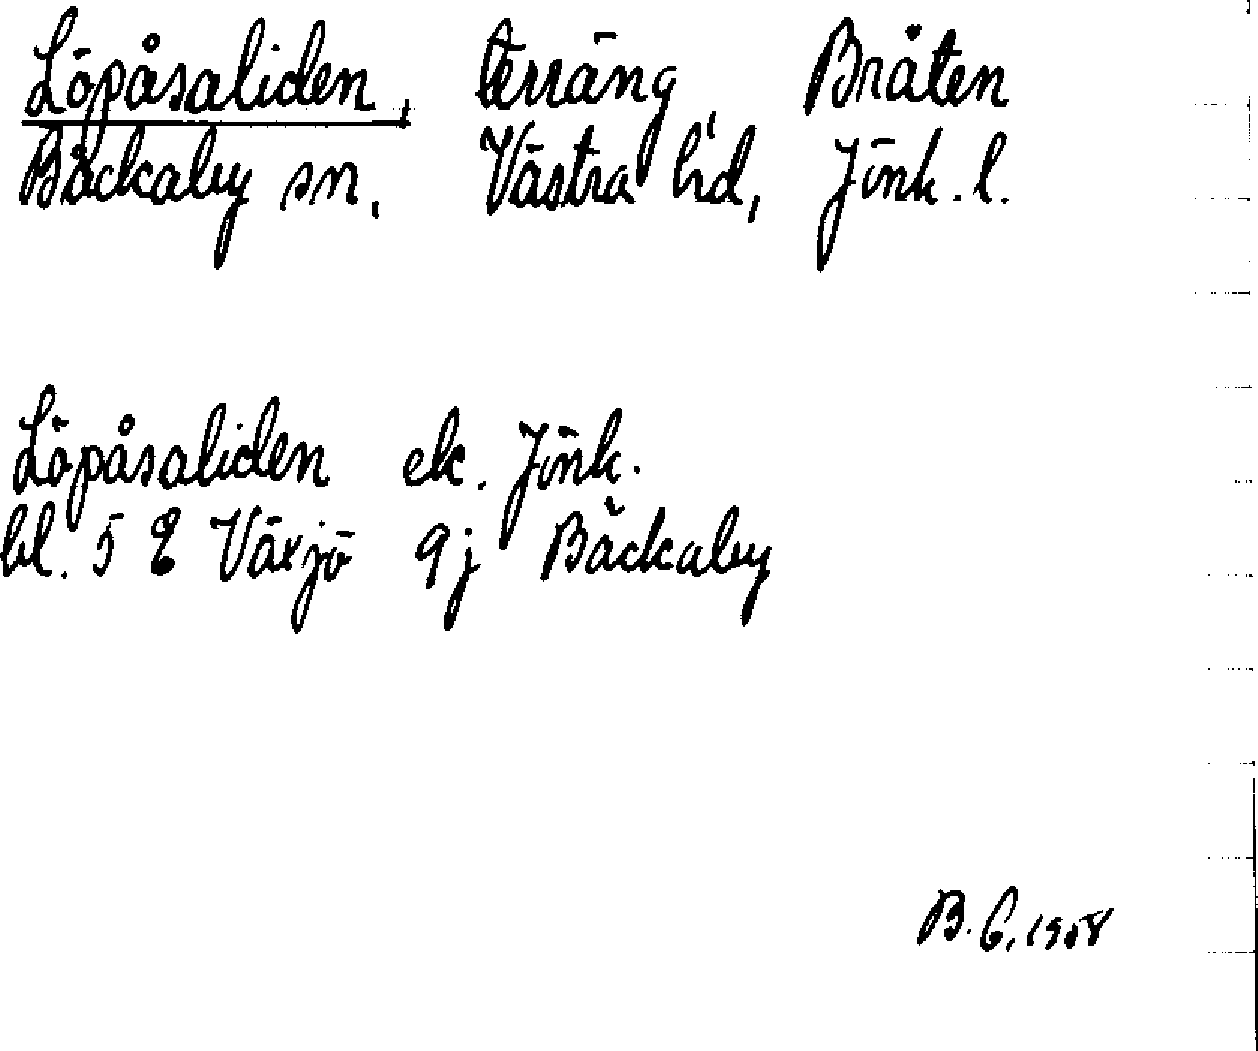 Löpåsaliden, terräng, Bråten
Bäckaby sn, Västra hd, Jönk. l.
Löpåsaliden ek. Jönk.
bl. 5 E Växjö 9j Bäckaby